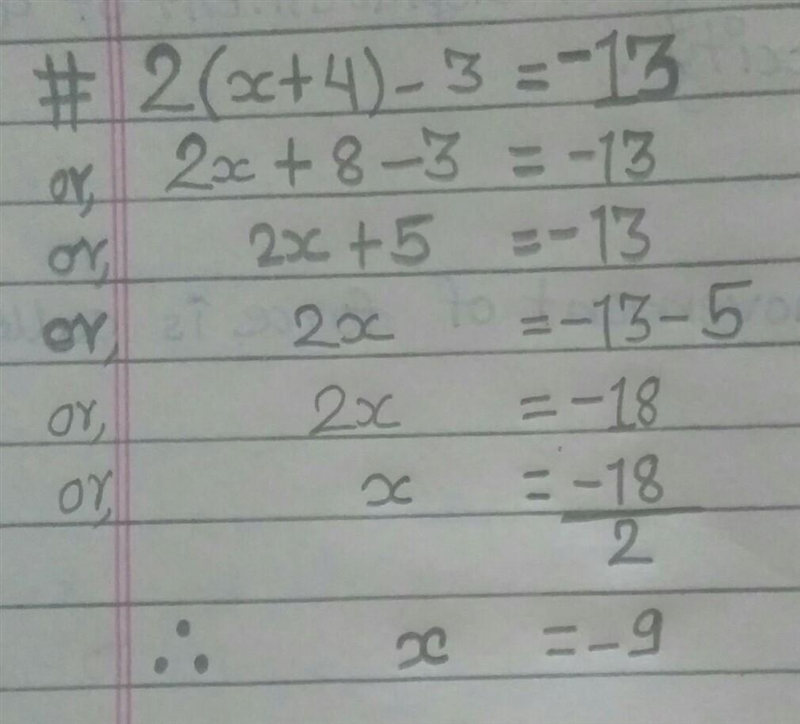 # 2(x+4)-3 = -13
or, 2x + 8 - 3 = -13
or, 2x + 5 = -13
or, 2x = -13 - 5
or, 2x = -18
or, x = -18
2
∴ x = -9